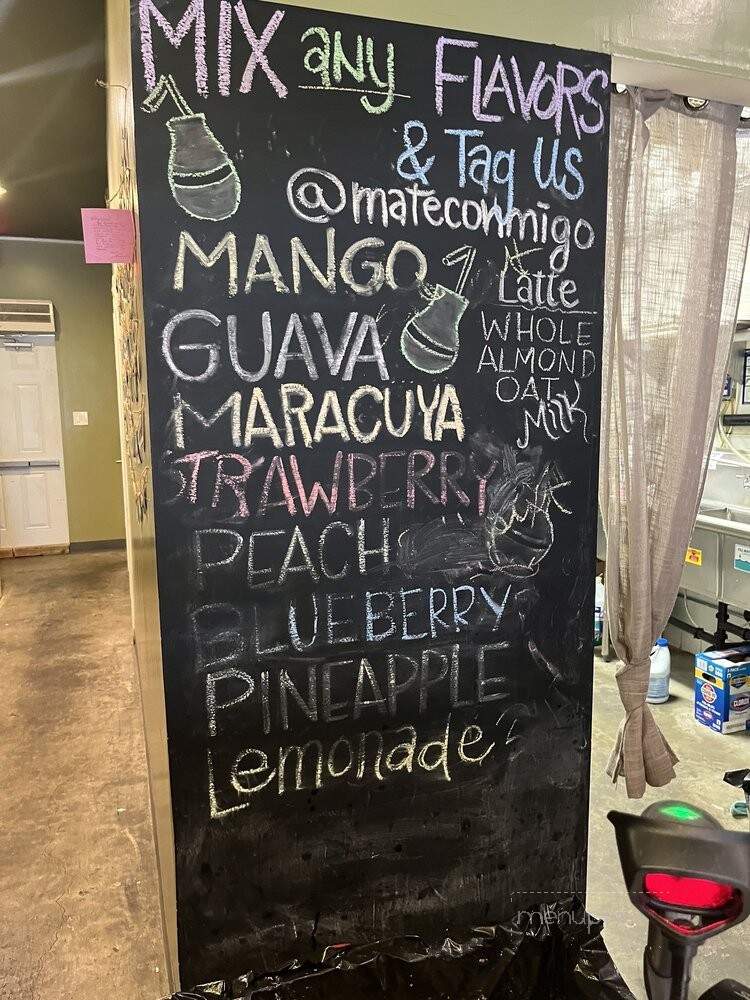 MIX any FLAVORS
& Tag US
@mateconmigo
MANGO
GUAVA
MARACUYA
STRAWBERRY
PEACH
BLUEBERRY
PINEAPPLE
Lemonade
Latte
WHOLE
ALMOND
OAT
Milk
CLOROX
menup